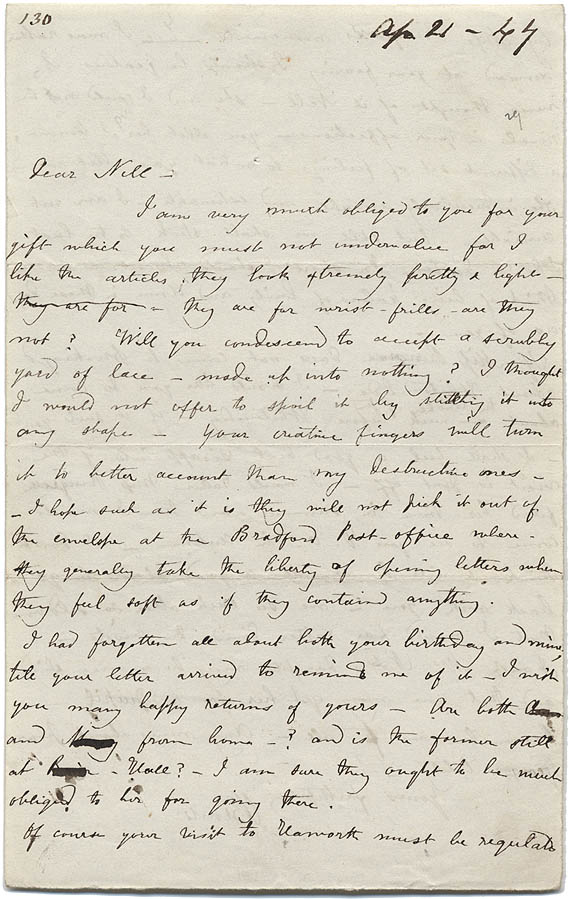 130
Ap 21 - 47
Dear Nell -
I am very much obliged to you for your
gift which you must not undervalue for I
like the articles, they look extremely pretty & light -
they are for - they are for wrist-frills - are they
not? Will you condescend to accept a scrubby
yard of lace - made up into nothing? I thought
I would not offer to spoil it by stitching it into
any shape - Your creative fingers will turn
it to better account than my destructive ones -
- I hope such as it is they will not pick it out of
the envelope at the Bradford Post-office where -
they generally take the liberty of opening letters when
they feel soft as if they contained anything.
I had forgotten all about both your birthday and mine,
till your letter arrived to remind me of it - I wish
you many happy returns of yours - Are both
and from home - ? and is the former still
at - Hall? - I am sure they ought to be much
obliged to her for going there.
Of course your visit to Haworth must be regulated